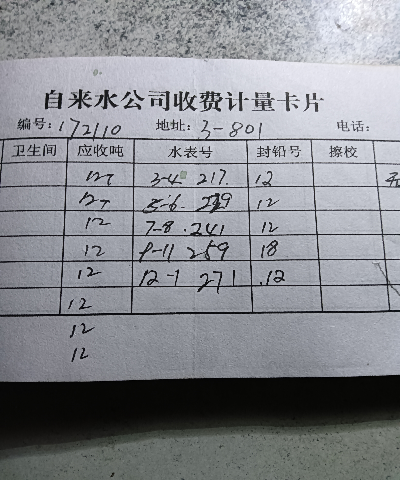 自来水公司收费计量卡片
编号: 172110 地址: 3-801 电话:
卫生间 应收吨 水表号 封铅号 擦校
12T 3-4 217. 12
12T 5-6 229 12
12 7-8 .241 12
12 9-11 259 18
12 12-1 271 .12
12
12
12